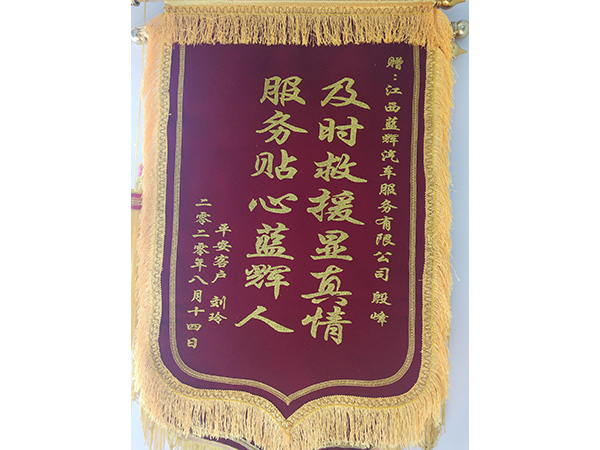 赠：江西蓝辉汽车服务有限公司 殷峰
及时救援显真情
服务贴心蓝辉人
平安客户 刘玲
二零二零年八月十四日